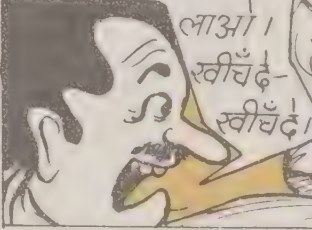 लाओ।
खीचँदे-
खीचँदे।